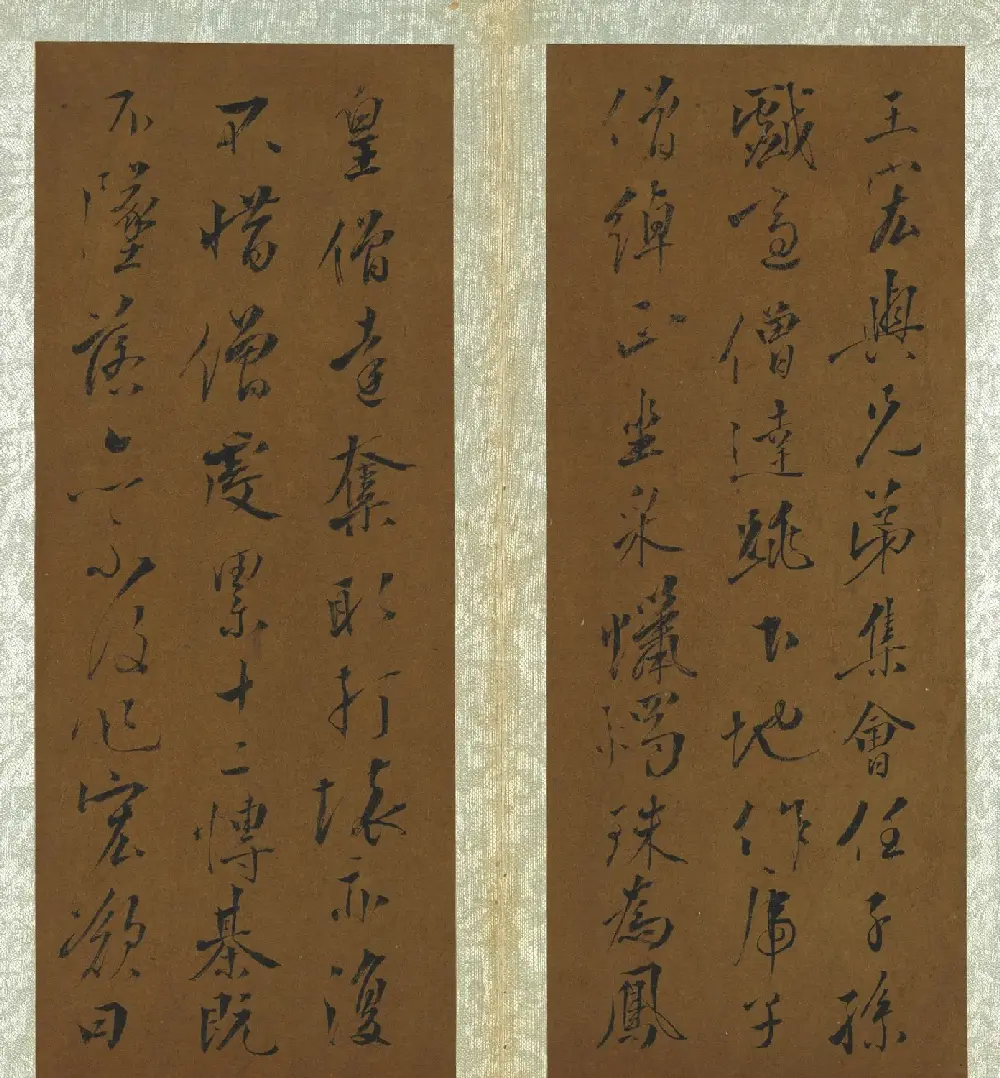 王宏與兄弟集會任子孫
戲適僧達跳下地作虎子
僧綽正坐采蠟燭珠為鳳
皇僧達奪取打壞亦復
不惜僧虔累十二博棊既
不墜落亦不復作宏歎曰